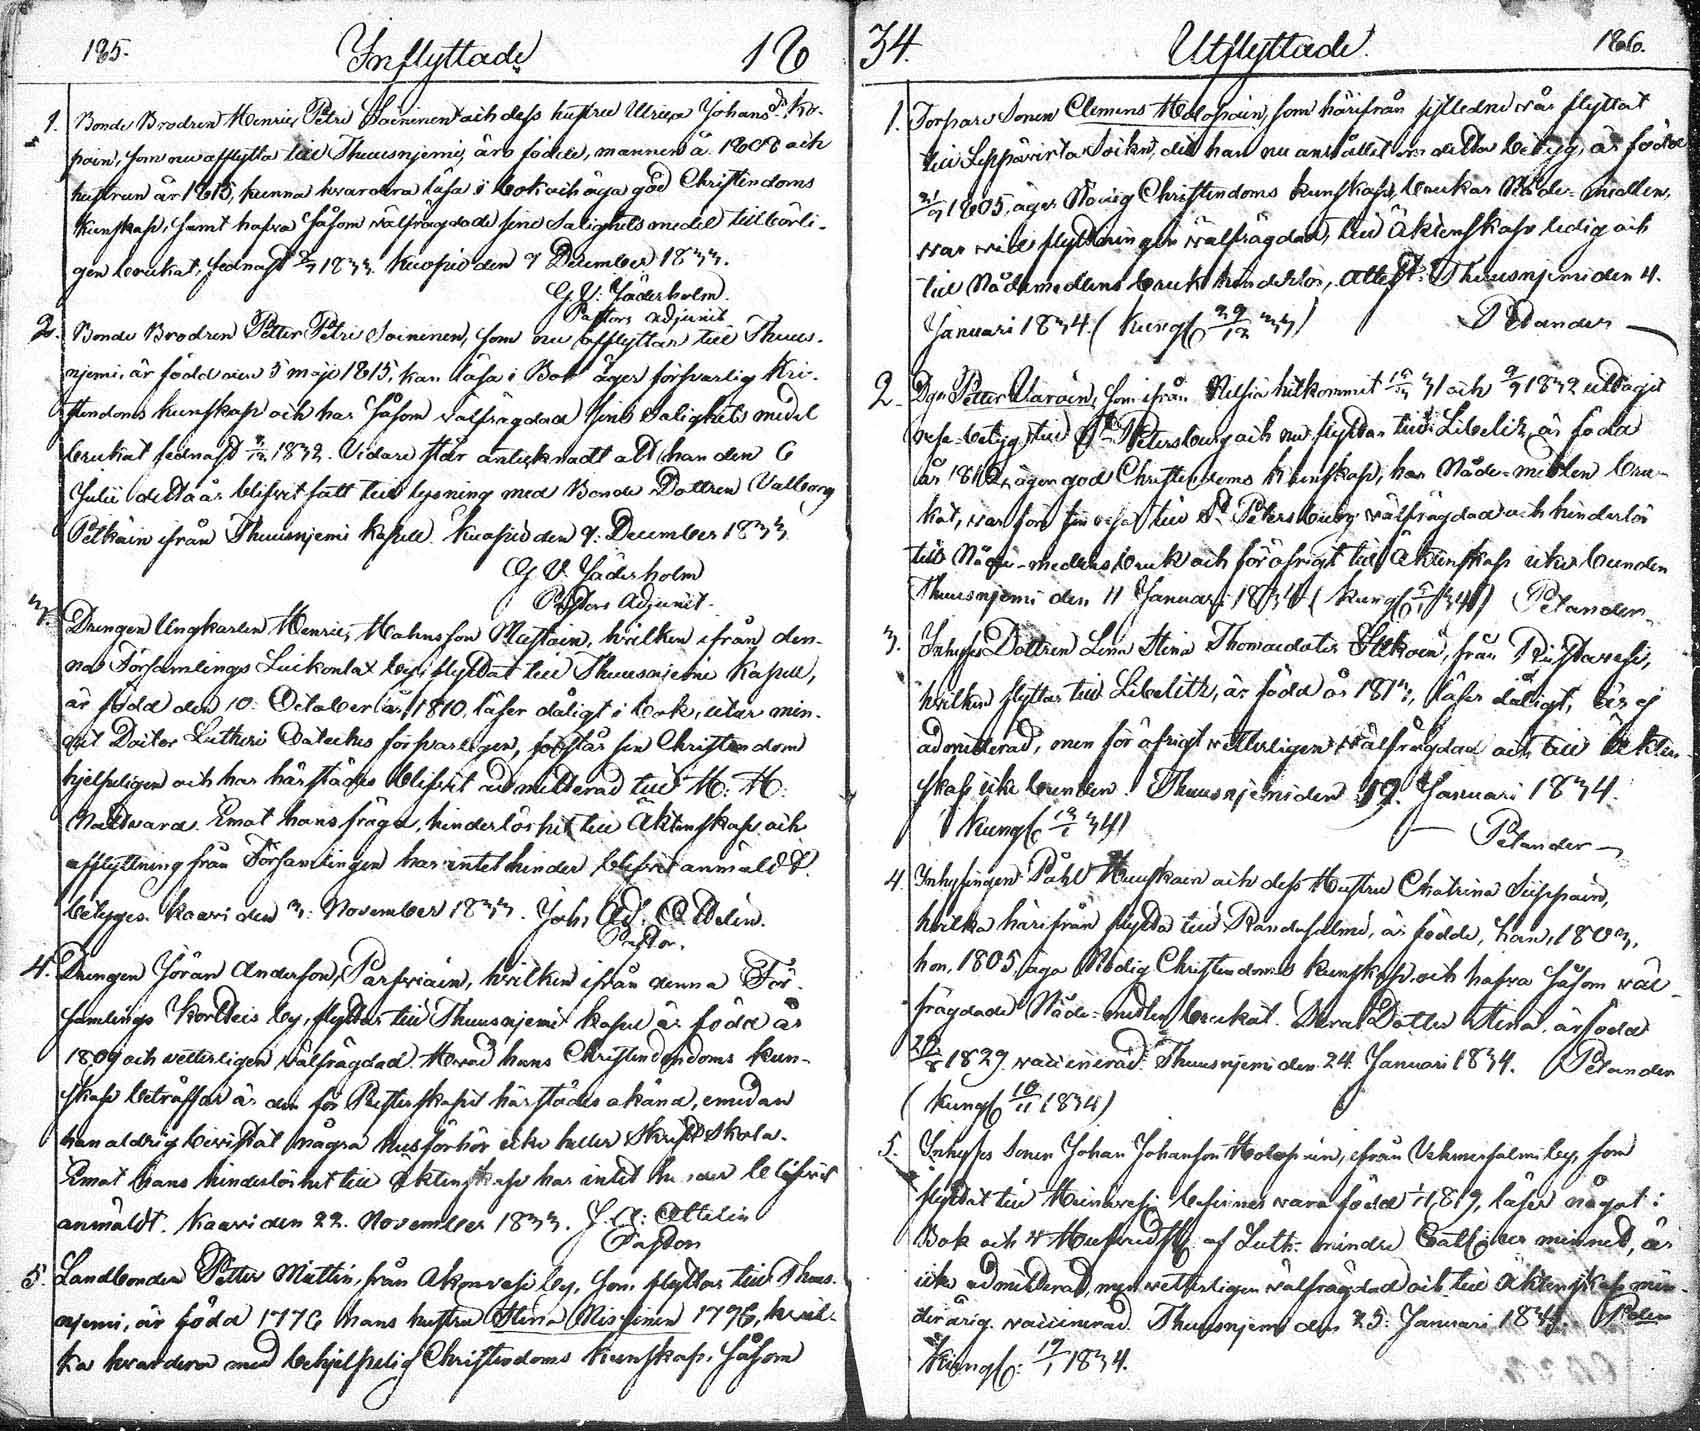 185. Inflyttade 18
1. Bonde Brodren Henric Petri Soininen och dess hustru Ulrica Johans dr Ko-
poin, som nu afflytta till Thuusnjemi, äro födde, mannen å. 1808 och
hustrun år 1813, kunna hvardera läsa i bok och äga god Christendoms
kunskap, samt hafva såsom välfrägdade sine Salighets medel tillbörli-
gen brukat, sednast 1833. Kuopio den 7 December 1833.
G. V. Jäderholm.
Pastors adjunct
2. Bonde Brodren Petter Petri Soininen, som nu afflyttar till Thuus-
njemi, är född den 5 maji 1815, kan läsa i Bok äger försvarlig Kri-
stendoms kunskap och har såsom välfrägdad sine Salighets medel
brukat sednast 1832. Vidare står antecknadt att han den 6
Julii detta år blifvit satt till lysning med Bonde Dottren Valborg
Pelkäin ifrån Thuusnjemi Kapell. Kuopio den 7. December 1833
G V. Jäderholm
Pastors Adjunct.
3. Drengen Ungkarlen Henric Mahnsson Mustoin, hvilken ifrån den-
na Församlings Luikonlax by, flyttat till Thuusnjemi Kapell,
är född den 10. October år 1810, läser dåligt i bok, utur min-
net Doctor Lutheri Cateches försvarligen, förstår sin Christendom
hjelpeligen och har härstädes blifvit admitterad till H. H.
Nattvard. Emot hans frägd, hinderlöshet till Äktenskap och
afflyttning från Församlingen har intet hinder blifvit anmäldt.
betyges. Kaavi den 3. November 1833. Joh. Ad. Ottelin.
Pastor.
4. Drengen Jöran Andersson Parviain, hvilken ifrån denna För-
samlings Kortteis by, flyttar till Thuusnjemi Kapell är född år
1809 och vetterligen välfrägdad. Hvad hans Christendomdoms kun-
skap beträffar är den för Presterskapet härstädes okänd, emedan
han aldrig bevistat några husförhör eller Skrift Skola.
Emot hans hinderlöshet till äktenskap har intet hinder blifvit
anmäldt. Kaavi den 22. November 1833. J. A. Ottelin
Pastor
5. Landbonden Petter Miettin, från Akonvesi by, som flyttar till Thuus-
njemi, är född 1776 hans hustru Stina Missinen 1776, hvil-
ka hvardera med behjelpelig Christendoms Kunskap, såsom
34. Utflyttade 186.
1. Torpare Sonen Clemens Holopain, som härifrån sistledne vår flyttat
till Leppävirta Socken, dit han nu anhållit om detta betyg, är född
1805, äger Christendoms kunskap, brukar Nåde-medlen,
var vid flyttningen välfrägdad, till Äktenskap ledig och
till Nådemedlens bruk hinderlös, attest: Thuusnjemi den 4.
Januari 1834. (Kungs 29/12 33) Pelander
2. Dgn Petter Varoin, som ifrån Nilsiä hitkommit 31 och 1832 uttagit
rese-betyg till St Petersburg och nu flyttar till Libelitz, är född
år 1812, äger god Christendoms kunskap, har Nåde-medlen bru-
kat, var före sin resa till St Petersburg välfrägdad och hinderlös
till Nåde-medlens bruk och för öfrigt till Äktenskap icke bunden
Thuusnjemi den 11 Januari 1834 (Kungs 34) Pelander
3. Inhyses Dottren Lena Stina Thomaedotter, från Riistavesi,
hvilken flyttar till Libelitz, är född år 1813, läser dåligt, är ej
admitterad, men för öfrigt vetterligen välfrägdad och till Äkten-
skap icke bunden. Thuusnjemi den 19. Januari 1834.
(Kungs 34) Pelander
4. Inhysingen Påhl Huuskoin och dess Hustru Chatrina Siippain,
hvilka härifrån flytta till Randasalmi, är födde, han, 1803,
hon, 1805, äga Nödig Christendoms kunskap och hafva såsom väl-
frägdade Nåde-medlen brukat. Deras Dotter Stina är född
1829 vaccinerad. Thuusnjemi den 24. Januari 1834. Pelander
(Kungs 1834)
5. Inhyses Sonen Johan Johansson Holopain, ifrån Vehmersalmi by, som
flyttat till Heinävesi befinnes vara född 1819, läser något i
Bok och 4 Hufvudst. af Luth. mindre Cat. ur minnet, är
icke admitterad, men vetterligen välfrägdad och till äktenskap min-
derårig. vaccinerad. Thuusnjemi den 25. Januari 1834.
Kungs: 1834.